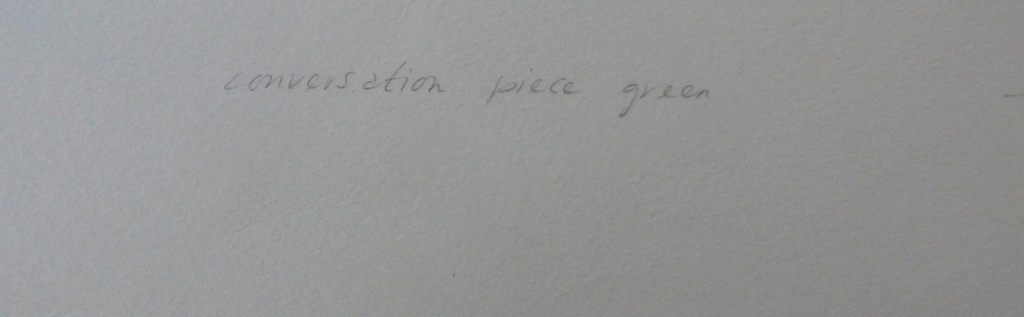 conversation piece green